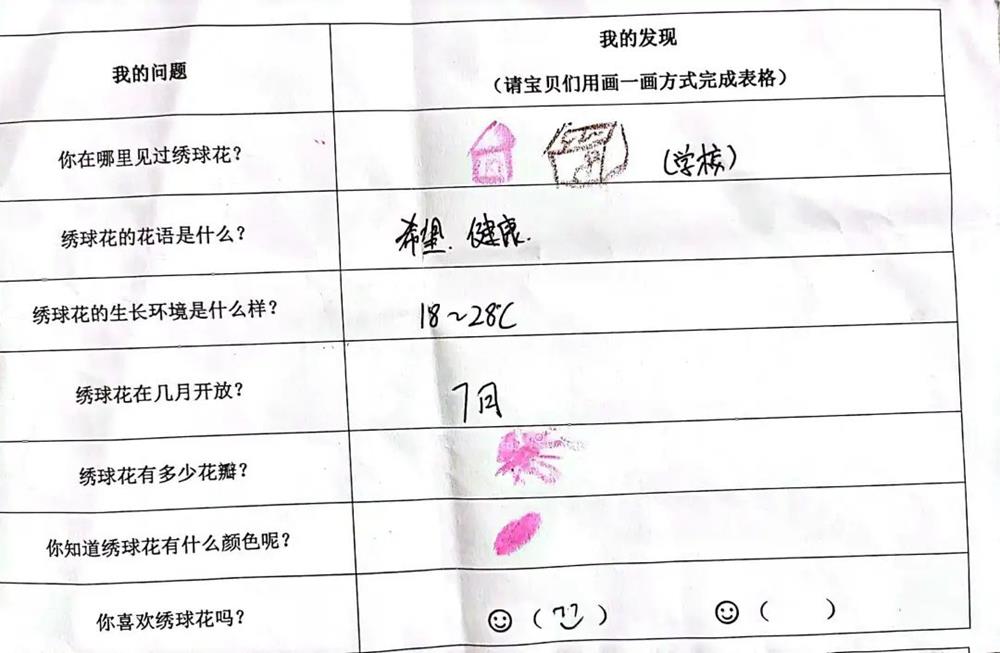 我的问题
我的发现
（请宝贝们用画一画方式完成表格）
你在哪里见过绣球花？
(学校)
绣球花的花语是什么？
希望. 健康.
绣球花的生长环境是什么样？
18~28℃
绣球花在几月开放？
7月
绣球花有多少花瓣？
你知道绣球花有什么颜色呢？
你喜欢绣球花吗？
☺（ ）
☺（ ）